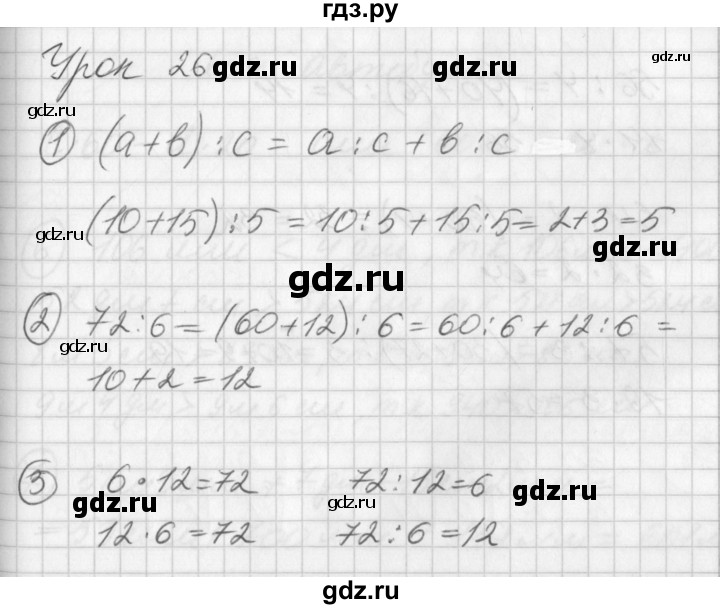 гдз.ру
Урок 26 gdz.ru gdz.ru gdz.ru
gdz.ru
① (a+b):c = a:c + b:c
gdz.ru (10+15):5 = 10:5+15:5 = 2+3=5
gdz.ru
gdz.ru
② 72:6 = (60+12):6 = 60:6 + 12:6 =
gdz.ru
10+2=12
③ 6·12=72 72:12=6
gdz.ru gdz.ru
12·6=72 72:6=12
gdz.ru gdz.ru
gdz.ru